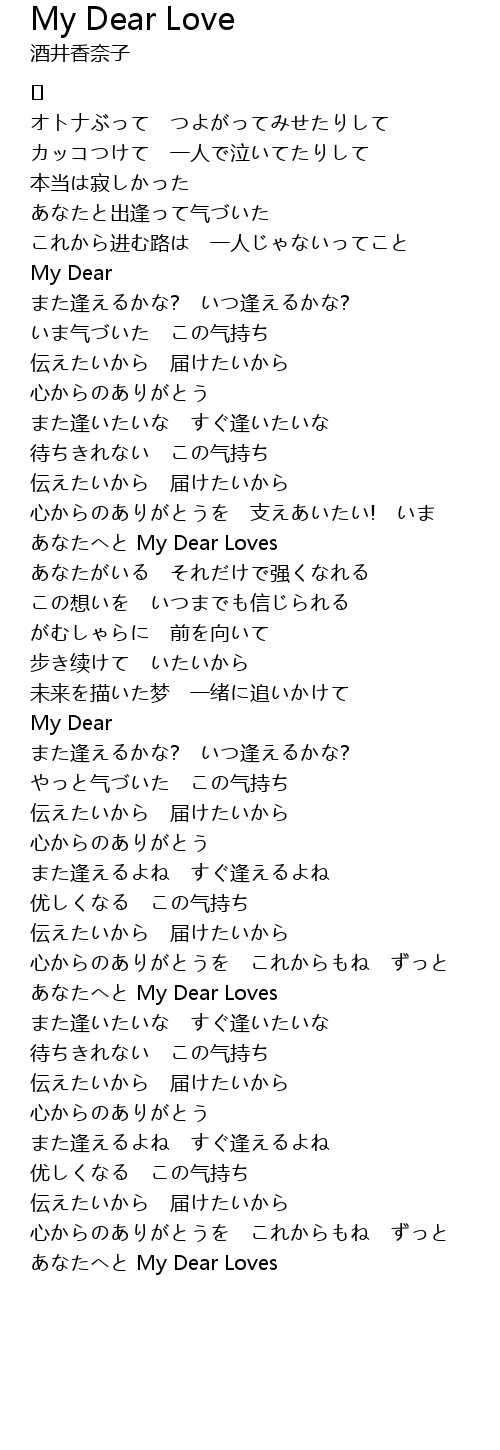 My Dear Love
酒井香奈子
[]
オトナぶって　つよがってみせたりして
カッコつけて　一人で泣いてたりして
本当は寂しかった
あなたと出逢って气づいた
これから进む路は　一人じゃないってこと
My Dear
また逢えるかな?　いつ逢えるかな?
いま气づいた　この气持ち
伝えたいから　届けたいから
心からのありがとう
また逢いたいな　すぐ逢いたいな
待ちきれない　この气持ち
伝えたいから　届けたいから
心からのありがとうを　支えあいたい!　いま
あなたへと My Dear Loves
あなたがいる　それだけで强くなれる
この想いを　いつまでも信じられる
がむしゃらに　前を向いて
歩き续けて　いたいから
未来を描いた梦　一绪に追いかけて
My Dear
また逢えるかな?　いつ逢えるかな?
やっと气づいた　この气持ち
伝えたいから　届けたいから
心からのありがとう
また逢えるよね　すぐ逢えるよね
优しくなる　この气持ち
伝えたいから　届けたいから
心からのありがとうを　これからもね　ずっと
あなたへと My Dear Loves
また逢いたいな　すぐ逢いたいな
待ちきれない　この气持ち
伝えたいから　届けたいから
心からのありがとう
また逢えるよね　すぐ逢えるよね
优しくなる　この气持ち
伝えたいから　届けたいから
心からのありがとうを　これからもね　ずっと
あなたへと My Dear Loves